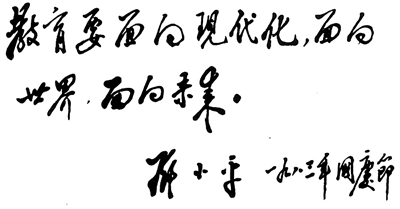 教育要面向现代化,面向
世界,面向未来。
邓小平 一九八三年國慶節